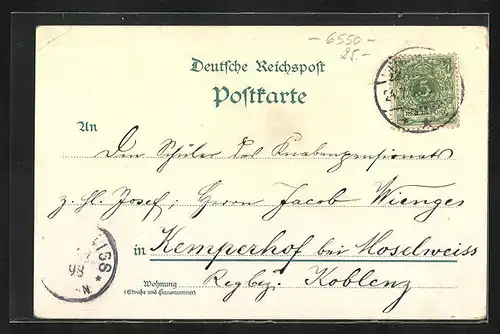 - 6550 -
25.-
Deutsche Reichspost
Postkarte
5
An
Den Schüler des Knabenpensionats
z. hl. Josef, Herrn Jacob Wienges
in Kemperhof bei Moselweiss
Wohnung
(Straße und Hausnummer)
Regbez. Koblenz
ISS *
98